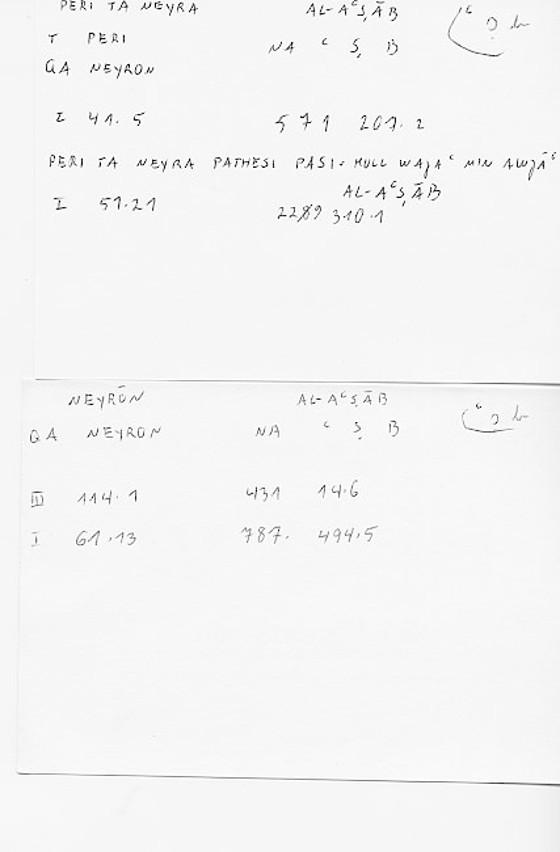 PERI TA NEYRA AL-AʿṢĀB ʿṣb
T PERI NA ʿ Ṣ B
QA NEYRON
I 41.5 571 207.2
PERI TA NEYRA PATHESI PASI = KULL WAJAʿ MIN AWJĀʿ
AL-AʿṢĀB
I 51.21 2289 310.1
NEYRŌN AL-AʿṢĀB ʿṣb
QA NEYRON NA ʿ Ṣ B
III 114.1 431 14.6
I 61.13 787. 494.5